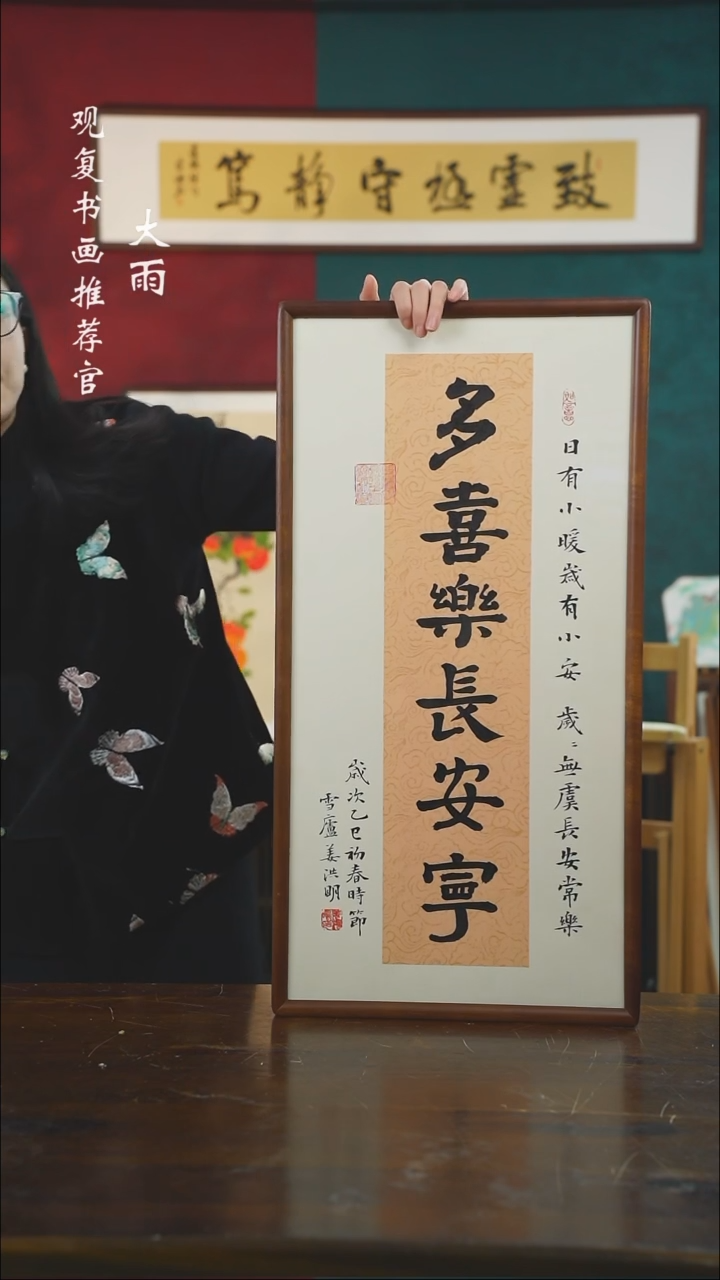 观复书画推荐官
大雨
致虚極守靜篤
日有小暖歲有小安 歲〻無虞長安常樂
多喜樂長安寧
歲次乙巳初春時節
雪廬姜洪明